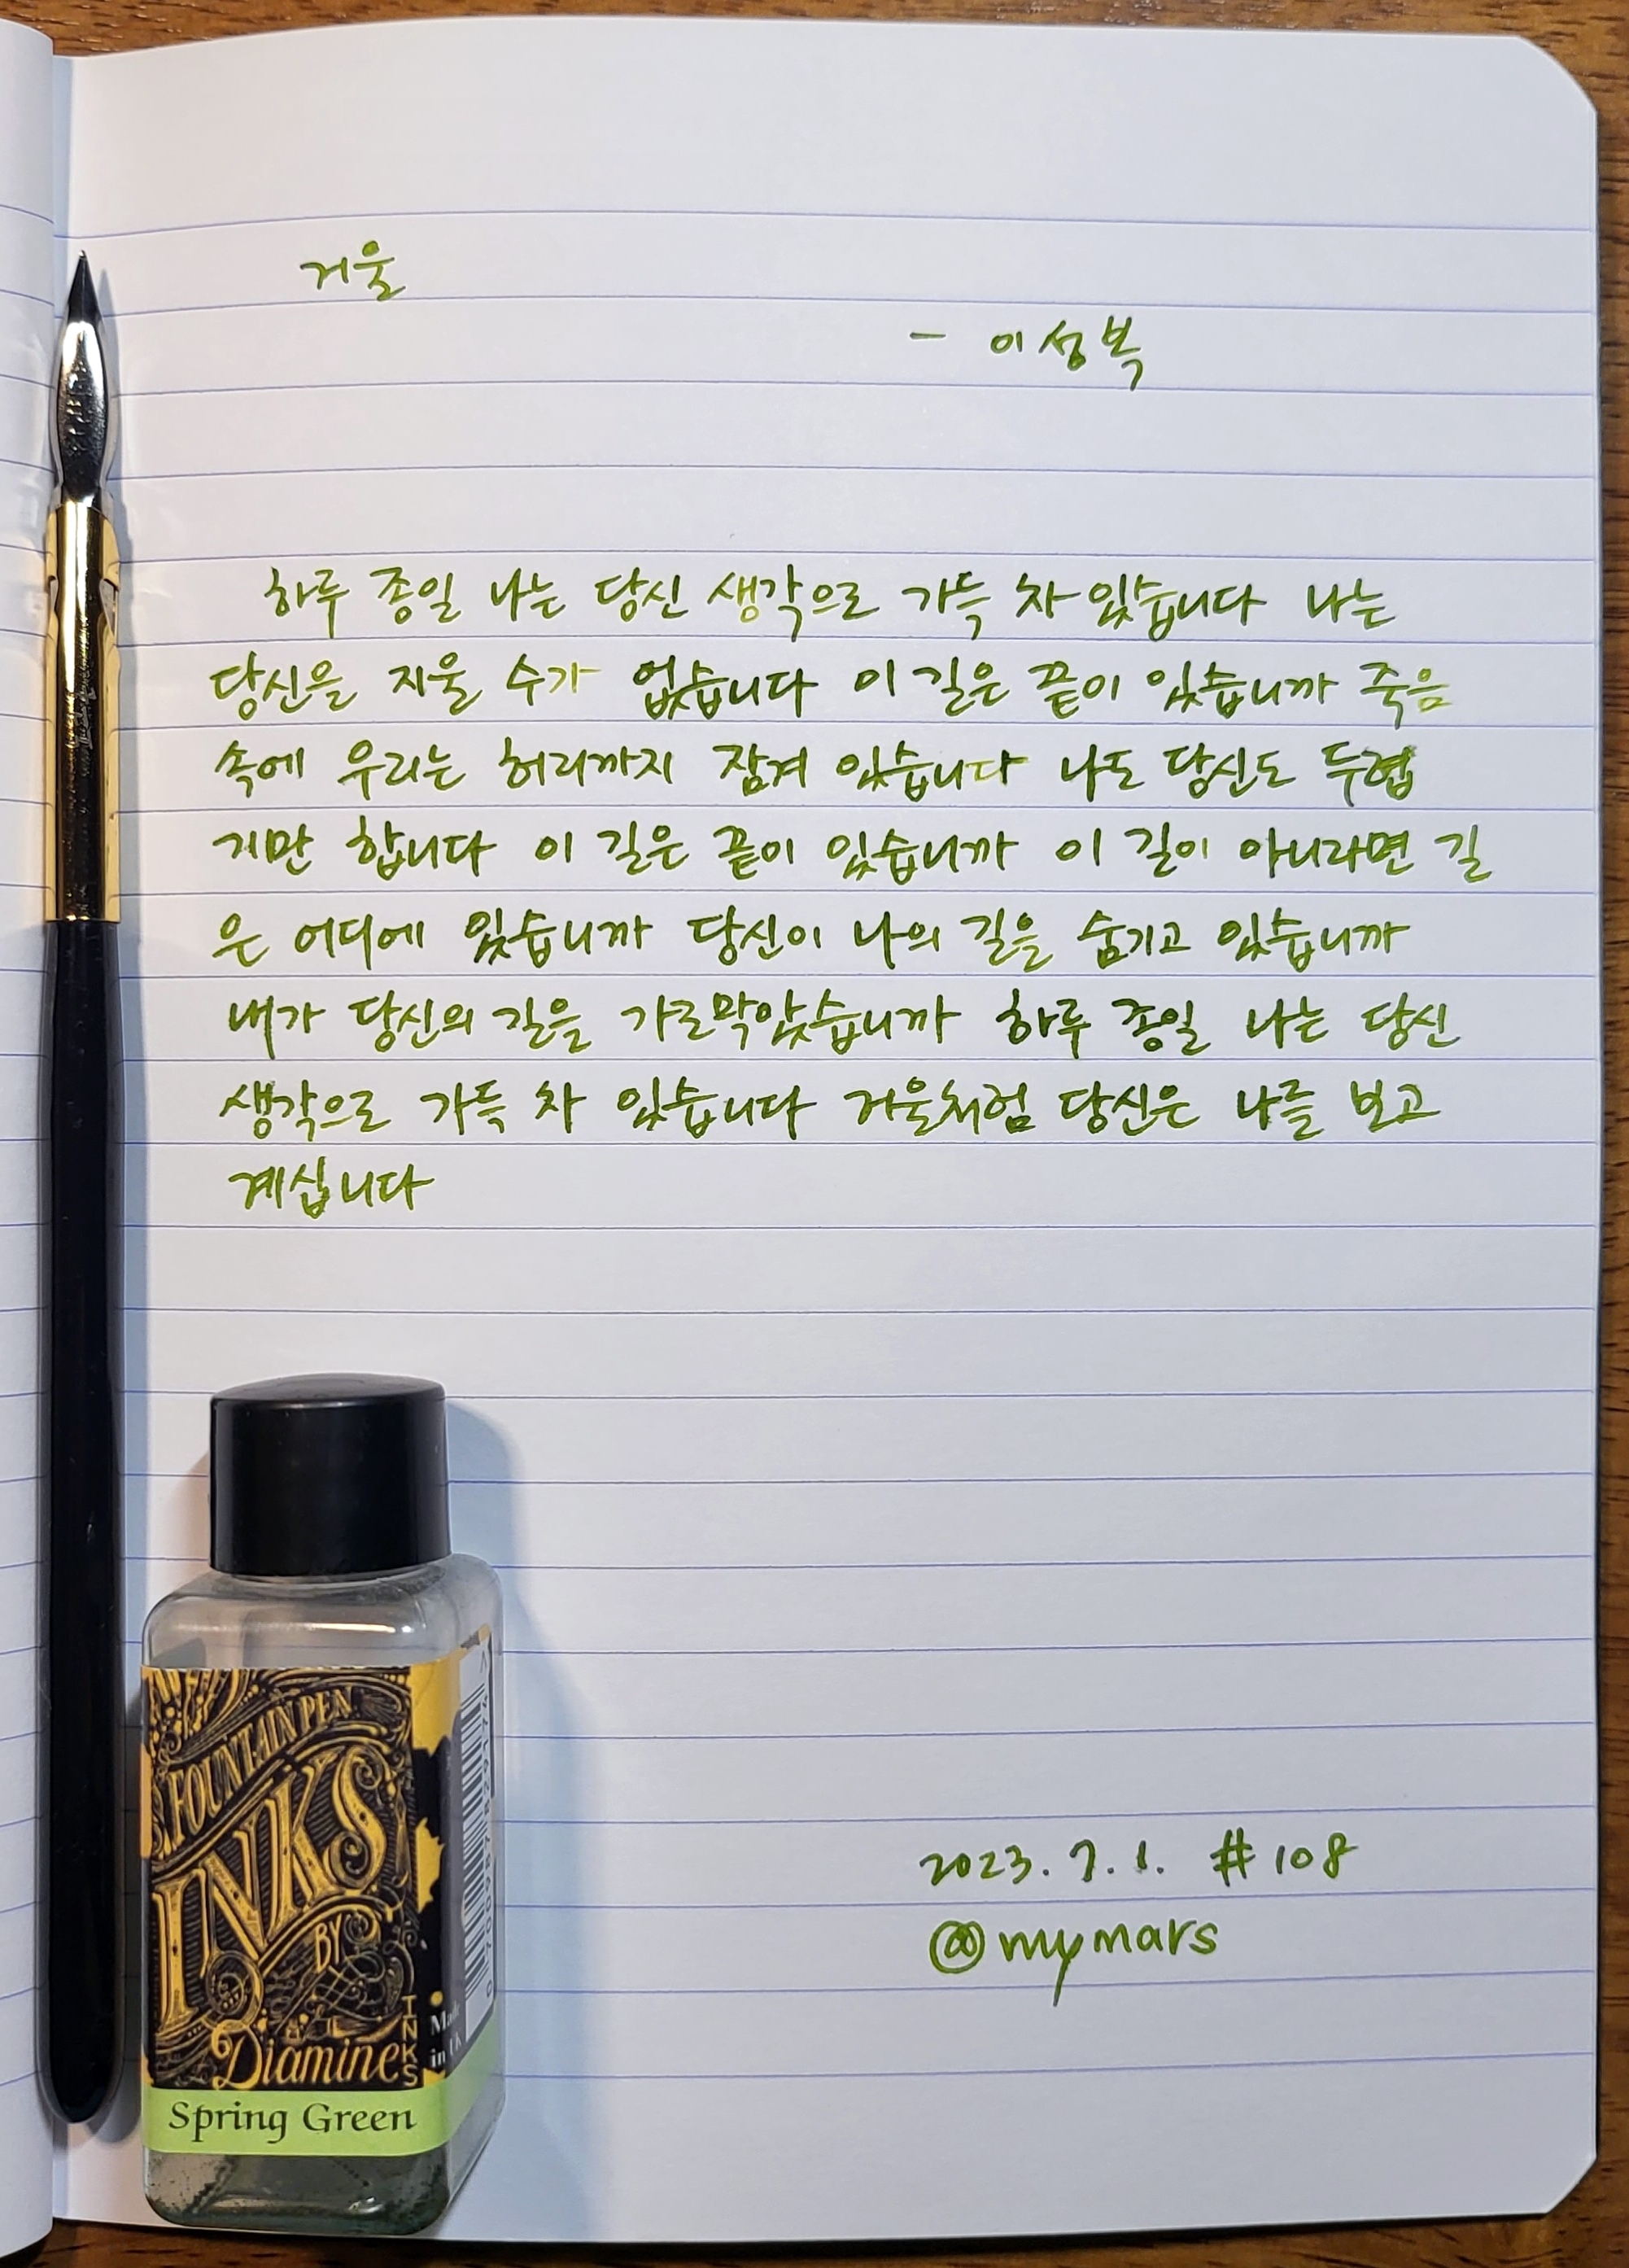 거울
- 이성복
하루 종일 나는 당신 생각으로 가득 차 있습니다 나는
당신을 지울 수가 없습니다 이 길은 끝이 있습니까 죽음
속에 우리는 허리까지 잠겨 있습니다 나도 당신도 두렵
기만 합니다 이 길은 끝이 있습니까 이 길이 아니라면 길
은 어디에 있습니까 당신이 나의 길을 숨기고 있습니까
내가 당신의 길을 가로막았습니까 하루 종일 나는 당신
생각으로 가득 차 있습니다 거울처럼 당신은 나를 보고
계십니다
FOUNTAIN PEN
INKS
BY
Diamine
INKS
Made
in UK
Spring Green
2023. 7. 1. #108
@mymars